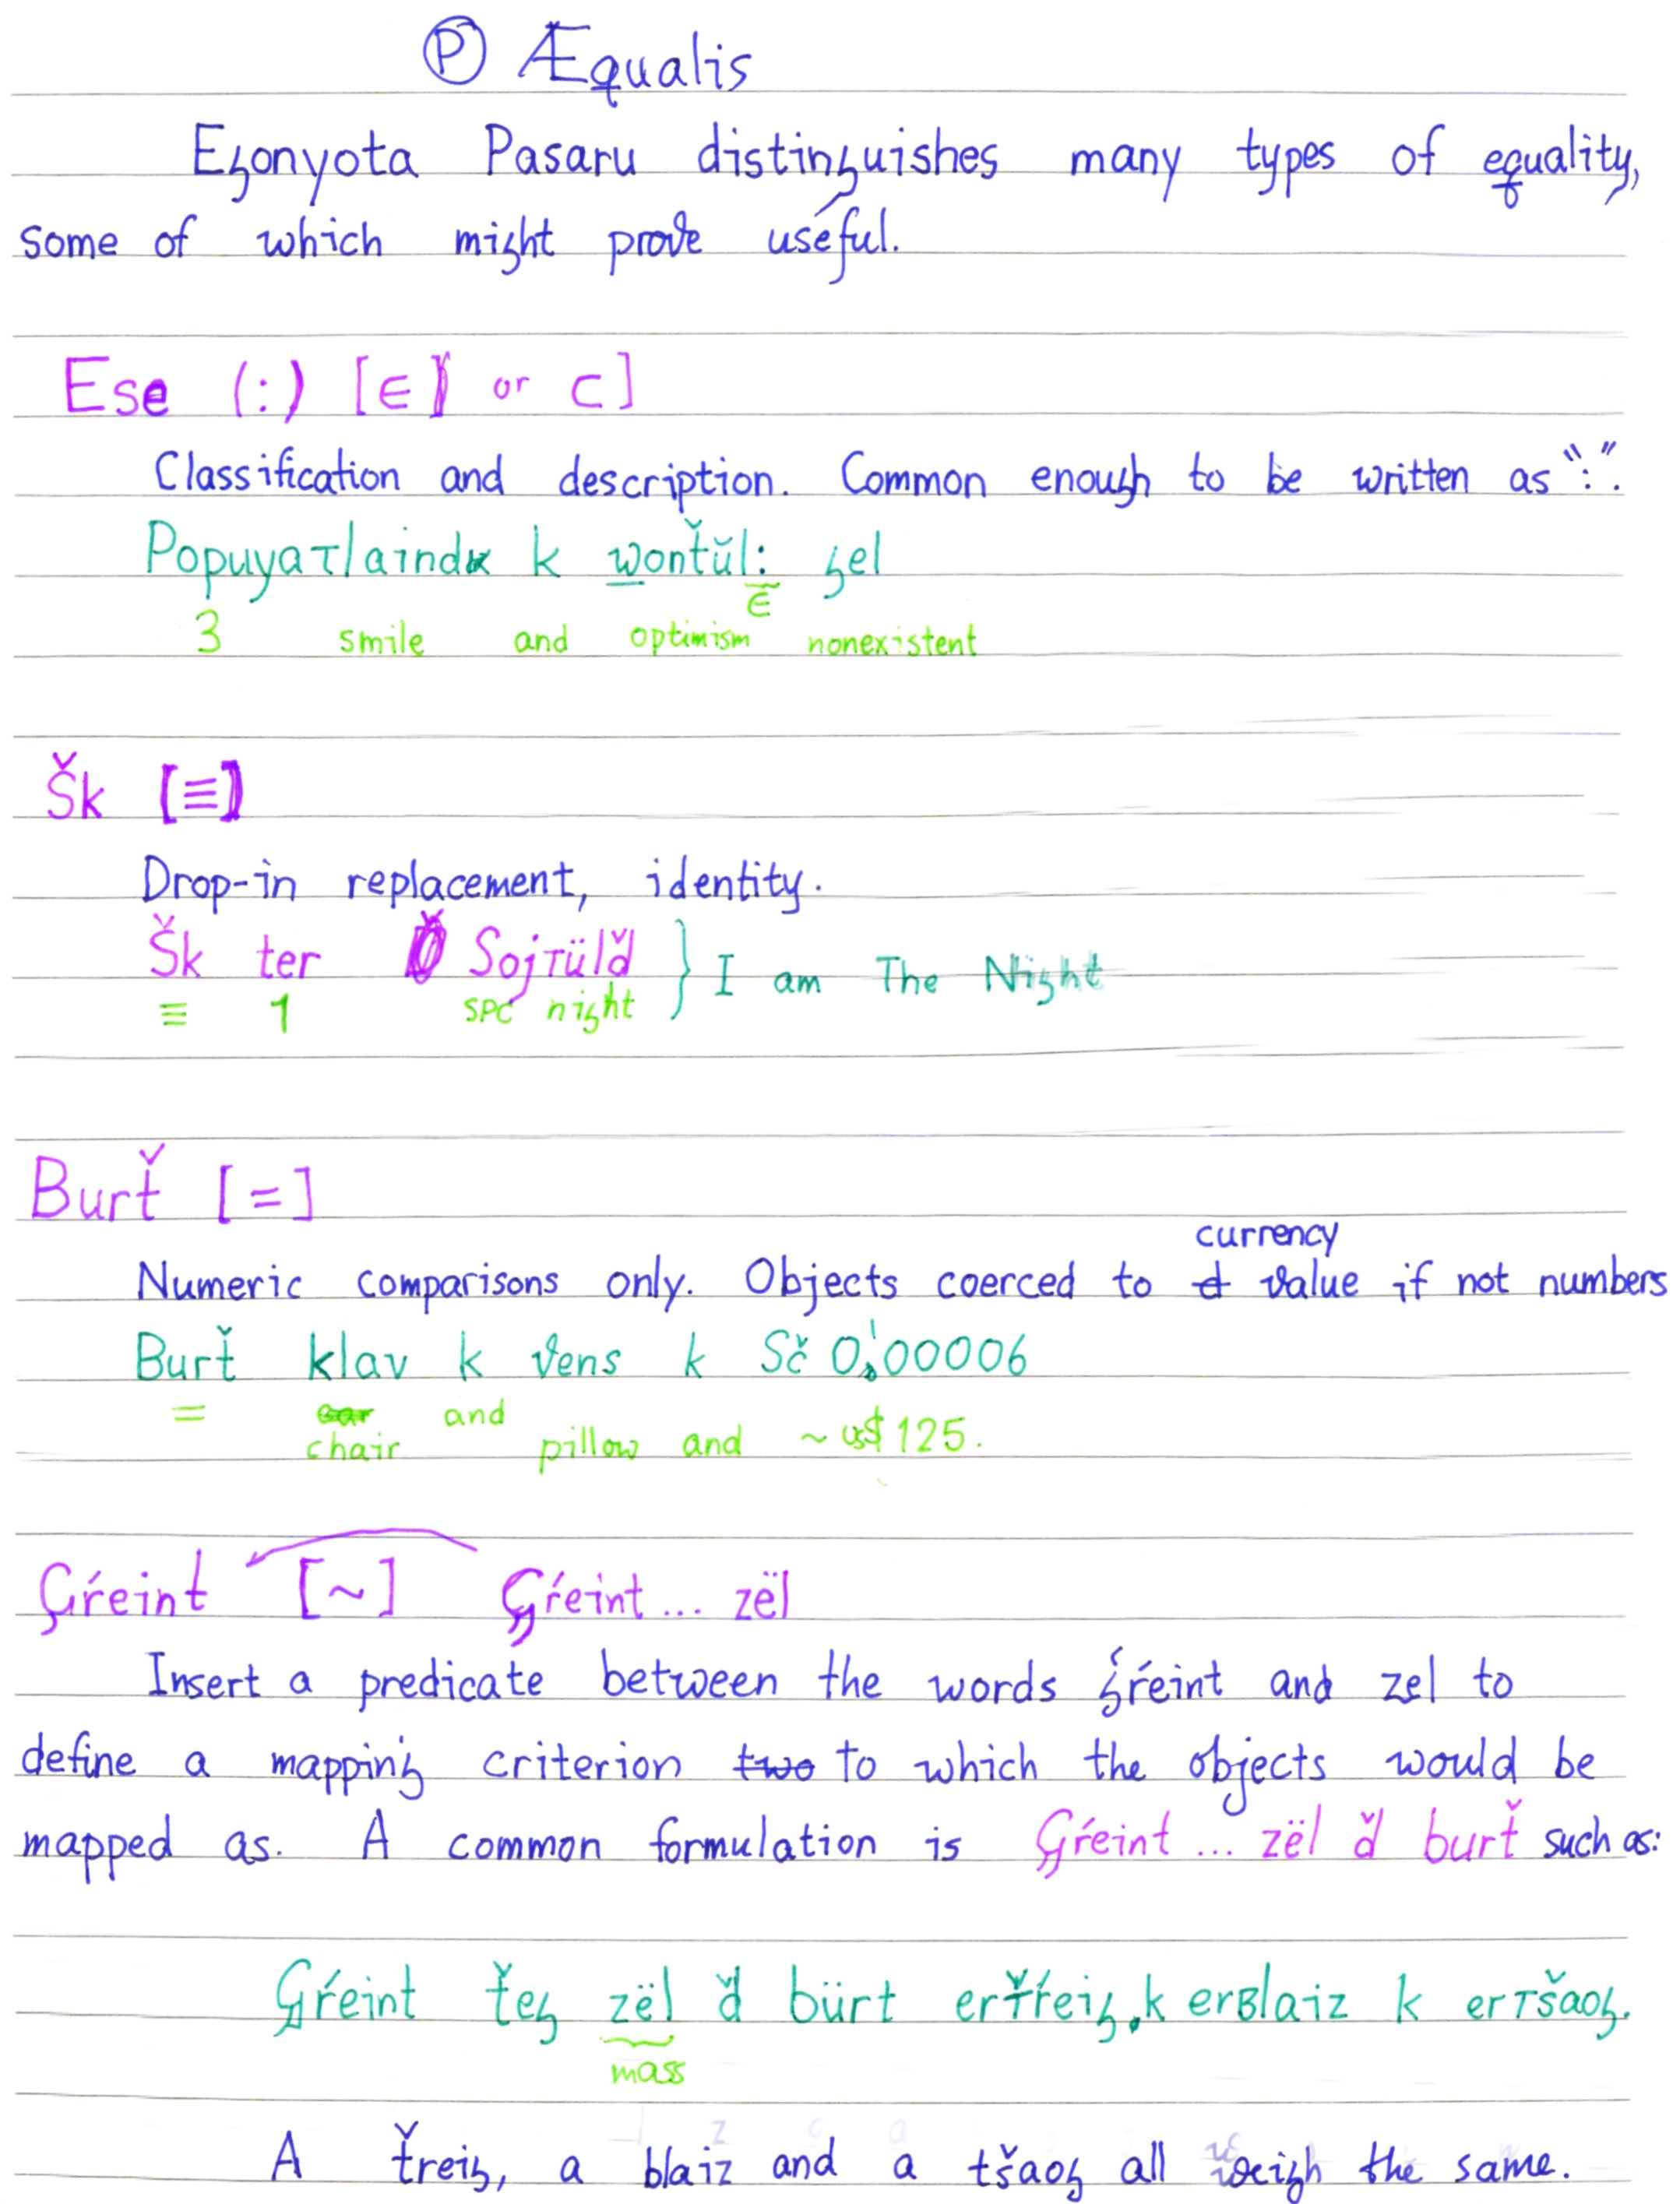 Ⓟ Æqualis
Egonyota Pasaru distinguishes many types of equality,
some of which might prove useful.
Ese (:) [∈ or ⊂]
Classification and description. Common enough to be written as ":".
k wontǔl: gel
∈
3 smile and optimism nonexistent
Šk [≡]
Drop-in replacement, identity.
Šk ter } I am The Night
≡ 1 SPC night
Burť [=]
currency
Numeric comparisons only. Objects coerced to value if not numbers
Burť klav k vens k Sč 0'00006
= and
chair pillow and ~ US$ 125.
Gŕeint [~] Gŕeint... zël
Insert a predicate between the words gŕeint and zel to
define a mapping criterion two to which the objects would be
mapped as. A common formulation is Gŕeint ... zël ď burť such as:
Gŕeint ťeg zël ď bürt k erBlaiz k erTšaog.
mass
A ťreig, a blaiz and a tšaog all weigh the same.